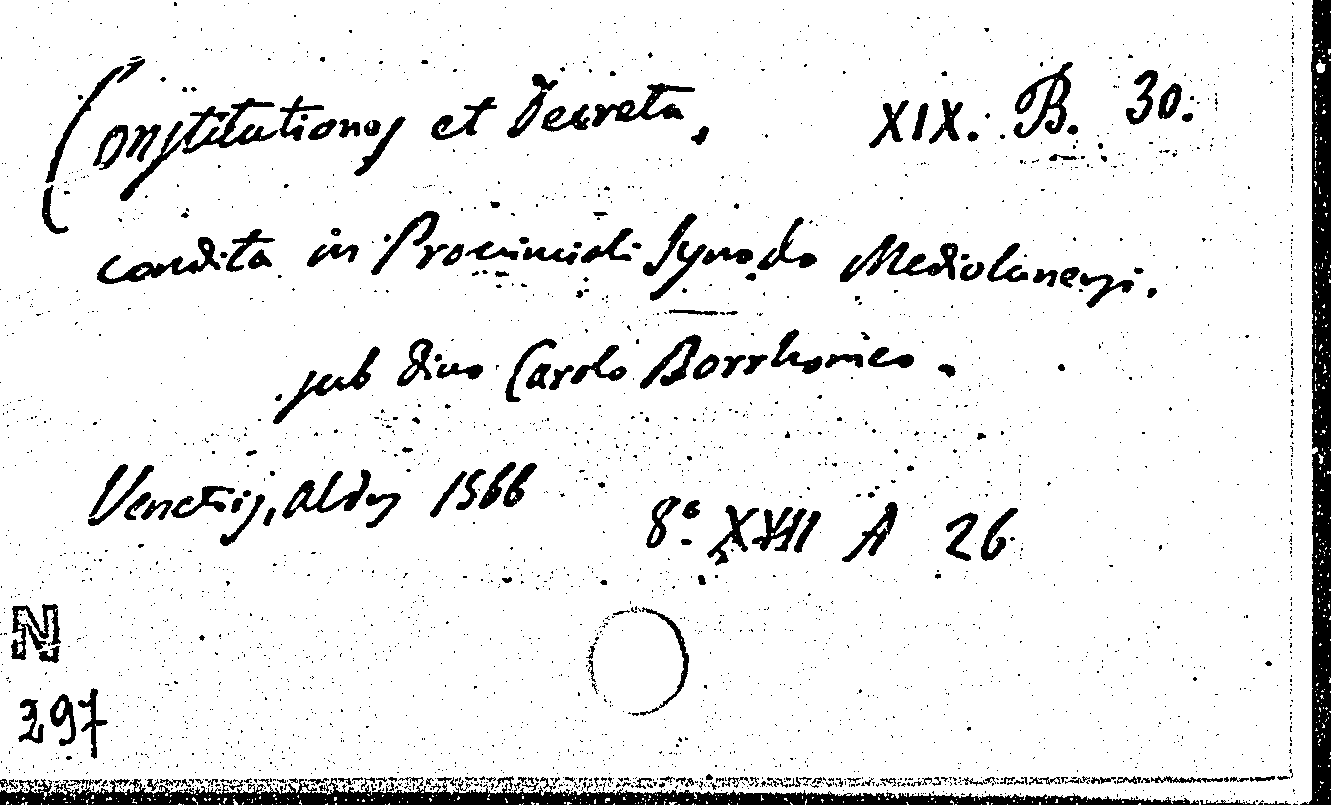 Constitutiones et Decreta, XIX. B. 30.
condita in Provinciali Synodo Mediolanensi.
sub divo Carolo Borrhomeo.
Venetiis, Aldus 1566 8° XVII A 26
N
297